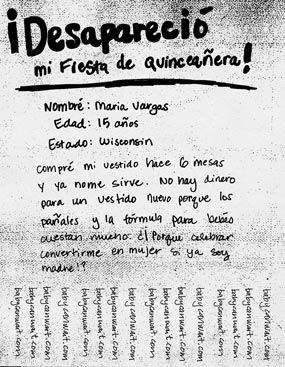 ¡Desapareció
mi Fiesta de quinceañera!
Nombré: Maria Vargas
Edad: 15 años
Estado: Wisconsin
Compré mi vestido hace 6 mesas
y ya nome sirve. No hay dinero
para un vestido nuevo porque los
pañales y la fórmula para bebés
cuestan mucho. ¿¡Porque celebrar
convertirme en mujer si ya soy
madre!?
babycanwait.com
babycanwait.com
babycanwait.com
babycanwait.com
babycanwait.com
babycanwait.com
babycanwait.com
babycanwait.com
babycanwait.com
babycanwait.com
babycanwait.com
babycanwait.com
babycanwait.com